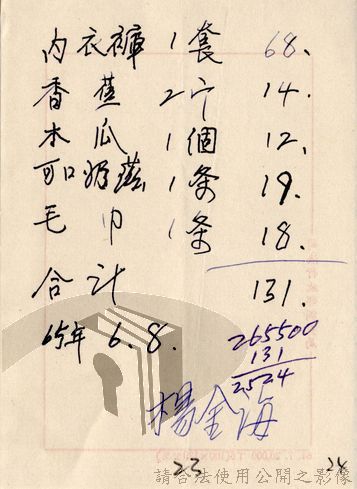 內衣褲 1套 68.
香蕉 2个 14.
木瓜 1個 12.
可口奶滋 1条 19.
毛巾 1条 18.
合計 131.
65年 6.8.
265500
131
2524
楊金海
23
24
請合法使用公開之影像